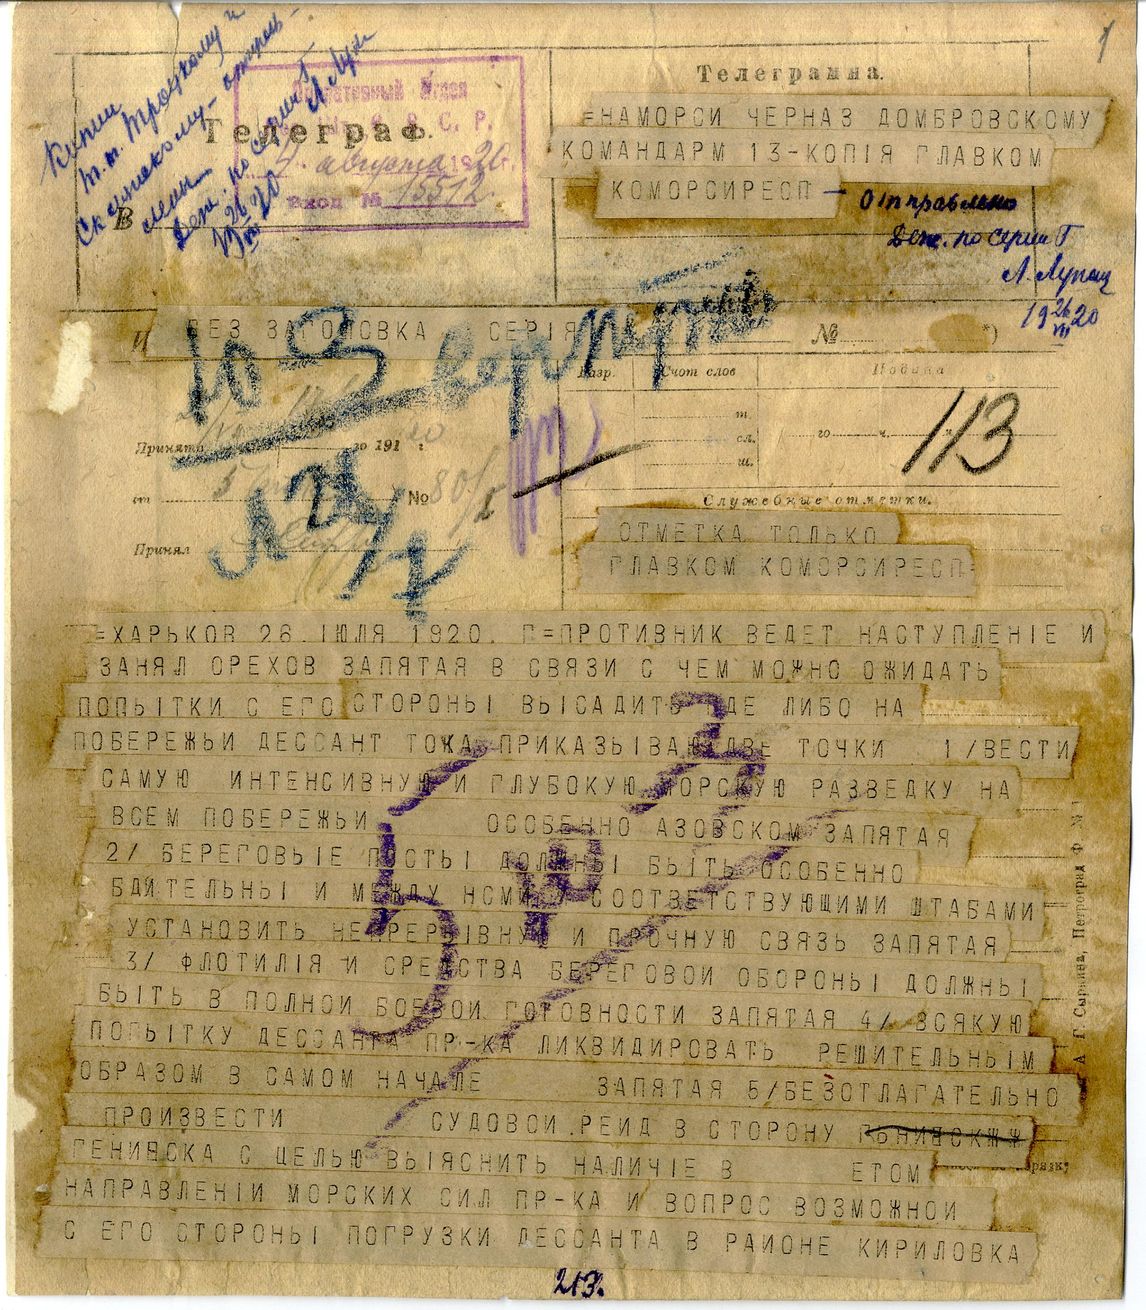 1
Копии
т.т. Троцкому и
Склянскому
Оперативный Отдел
Р. С. Р.
4. августа 1920 г.
Вход № 15512
Телеграф.
В
Телеграмма.
=НАМОРСИ ЧЕРНАЗ ДОМБРОВСКОМУ
КОМАНДАРМ 13-КОПІЯ ГЛАВКОМ
КОМОРСИРЕСП
Отправлено
Деж. по серии Г
19 26/VII 20
БЕЗ ЗАГОЛОВКА СЕРІЯ
№
Разр.
Счет слов
Подача
Принята
го 191 г
т.
сл.
ш.
го ч. м.
113
от
№ 80/
Служебные отметки.
Принял
ОТМЕТКА ТОЛЬКО
ГЛАВКОМ КОМОРСИРЕСП=
=ХАРЬКОВ 26. ІЮЛЯ 1920. Г=ПРОТИВНИК ВЕДЕТ НАСТУПЛЕНІЕ И
ЗАНЯЛ ОРЕХОВ ЗАПЯТАЯ В СВЯЗИ С ЧЕМ МОЖНО ОЖИДАТЬ
ПОПЫТКИ С ЕГО СТОРОНЫ ВЫСАДИТЬ ГДЕ ЛИБО НА
ПОБЕРЕЖЬИ ДЕССАНТ ТЧКА ПРИКАЗЫВАЮ ДВЕ ТОЧКИ 1/ВЕСТИ
САМУЮ ИНТЕНСИВНУЮ И ГЛУБОКУЮ МОРСКУЮ РАЗВЕДКУ НА
ВСЕМ ПОБЕРЕЖЬИ ОСОБЕННО АЗОВСКОМ ЗАПЯТАЯ
2/ БЕРЕГОВЫЕ ПОСТЫ ДОЛЖНЫ БЫТЬ ОСОБЕННО
БДИТЕЛЬНЫ И МЕЖДУ НСМИ И СООТВЕТСТВУЮЩИМИ ШТАБАМИ
УСТАНОВИТЬ НЕПРЕРЫВНУЮ И ПРОЧНУЮ СВЯЗЬ ЗАПЯТАЯ
3/ ФЛОТИЛІЯ И СРЕДСТВА БЕРЕГОВОЙ ОБОРОНЫ ДОЛЖНЫ
БЫТЬ В ПОЛНОЙ БОЕВОЙ ГОТОВНОСТИ ЗАПЯТАЯ 4/ ВСЯКУЮ
ПОПЫТКУ ДЕССАНТА ПР-КА ЛИКВИДИРОВАТЬ РЕШИТЕЛЬНЫМ
ОБРАЗОМ В САМОМ НАЧАЛЕ ЗАПЯТАЯ 5/БЕЗОТЛАГАТЕЛЬНО
ПРОИЗВЕСТИ СУДОВОЙ РЕЙД В СТОРОНУ
ГЕНИЧСКА С ЦЕЛЬЮ ВЫЯСНИТЬ НАЛИЧІЕ В ЕТОМ
НАПРАВЛЕНІИ МОРСКИХ СИЛ ПР-КА И ВОПРОС ВОЗМОЖНОЙ
С ЕГО СТОРОНЫ ПОГРУЗКИ ДЕССАНТА В РАЙОНЕ КИРИЛОВКА
А. Г. Сыркина, Петроград Ф. №
213.